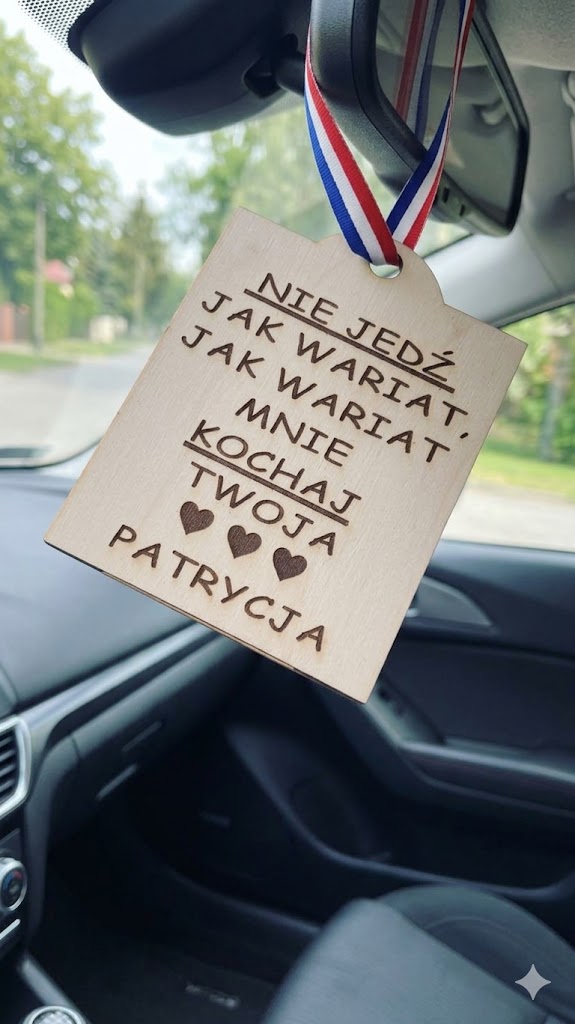 NIE JEDŹ
JAK WARIAT,
JAK WARIAT
MNIE
KOCHAJ
TWOJA
PATRYCJA